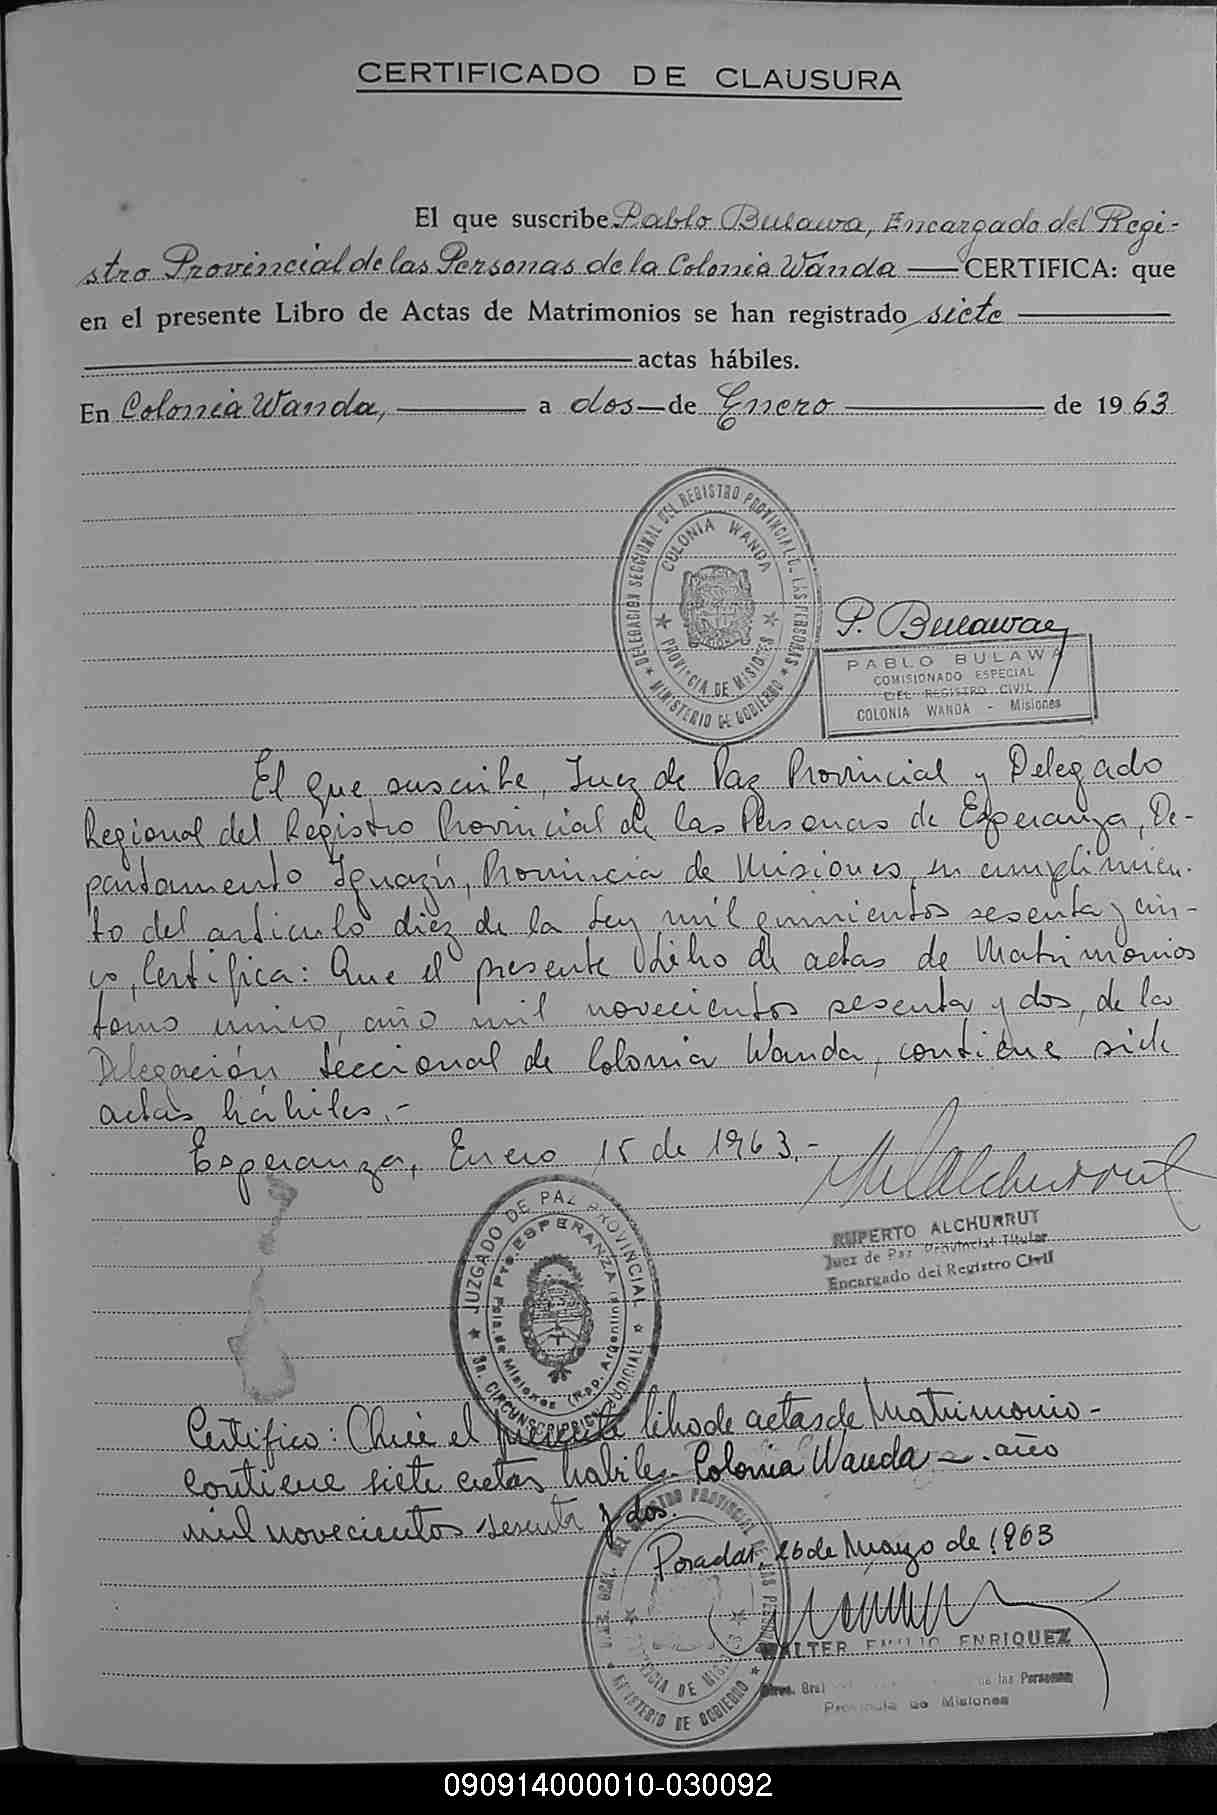 CERTIFICADO DE CLAUSURA
El que suscribe Pablo Bulawa, Encargado del Regi-
stro Provincial de las Personas de la Colonia Wanda — CERTIFICA: que
en el presente Libro de Actas de Matrimonios se han registrado siete
actas hábiles.
En Colonia Wanda, a dos de Enero de 1963
DELEGACIÓN SECCIONAL DEL REGISTRO PROVINCIAL D. LAS PERSONAS
COLONIA WANDA
PROVINCIA DE MISIONES
MINISTERIO DE GOBIERNO
P. Bulawa
PABLO BULAWA
COMISIONADO ESPECIAL
DEL REGISTRO CIVIL
COLONIA WANDA - Misiones
El que suscribe, Juez de Paz Provincial y Delegado
Regional del Registro Provincial de las Personas de Esperanza, De-
partamento Iguazú, Provincia de Misiones, en cumplimien-
to del articulo diez de la Ley mil quinientos sesenta y cin-
co, Certifica: Que el presente Libro de actas de Matrimonios
tomo unico, año mil novecientos sesenta y dos, de la
Delegación Seccional de Colonia Wanda, contiene siete
actas hábiles.-
Esperanza, Enero 15 de 1963.-
JUZGADO DE PAZ PROVINCIAL
Pto. ESPERANZA
Pcia. de Misiones (Rep. Argentina)
3a. CIRCUNSCRIPCION JUDICIAL
RUPERTO ALCHURRUT
Juez de Paz Provincial Titular
Encargado del Registro Civil
Certifico: Que el presente libro de actas de Matrimonio-
contiene siete actas habiles. Colonia Wanda - año
mil novecientos sesenta y dos.
Posadas, 26 de Marzo de 1963
REGISTRO PROVINCIAL DE LAS PERSONAS
PROVINCIA DE MISIONES
MINISTERIO DE GOBIERNO
WALTER EMILIO ENRIQUEZ
Direc. Gral de las Personas
Provincia de Misiones
090914000010-030092